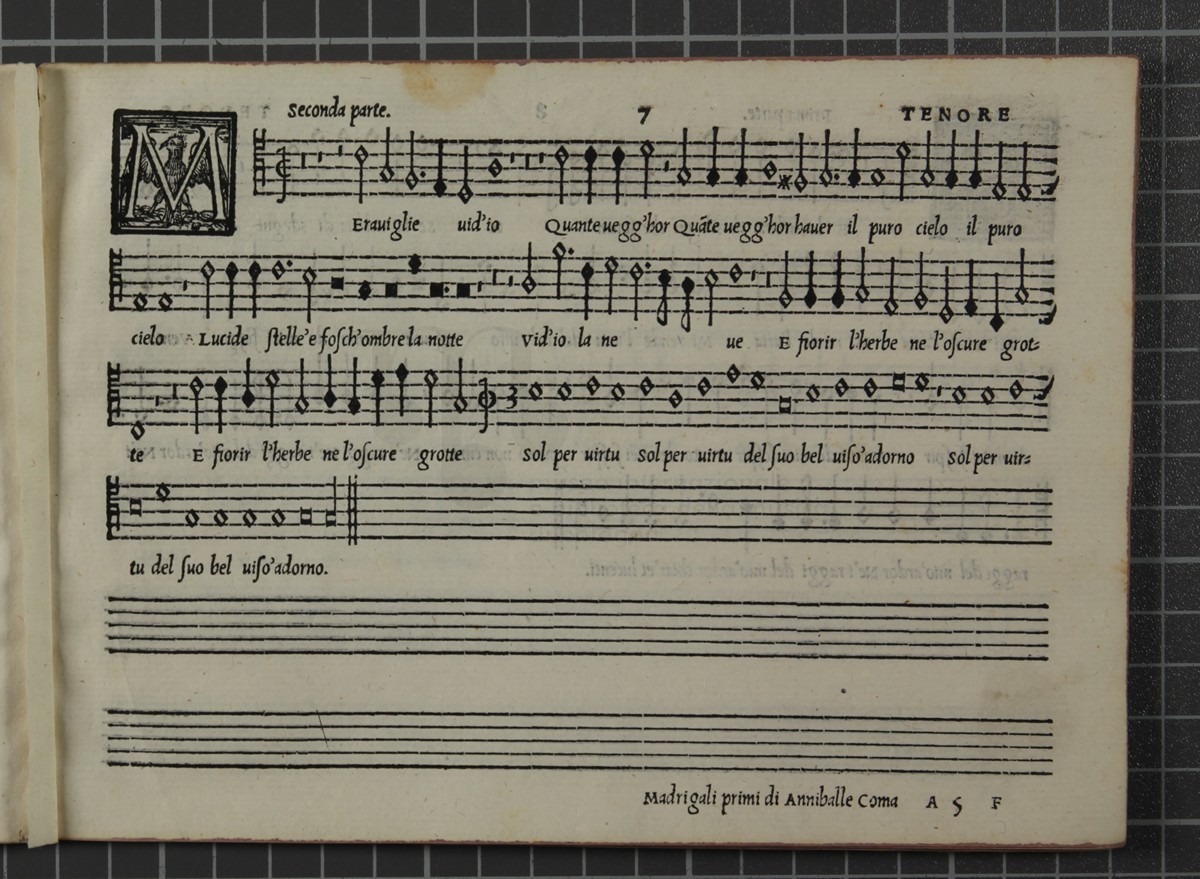 Seconda parte. 7 TENORE
MEraviglie uid'io Quante uegg'hor Quãte uegg'hor hauer il puro cielo il puro
cielo Lucide ſtelle'e foſch'ombre la notte vid'io la ne ue E fiorir l'herbe ne l'oſcure grot=
te E fiorir l'herbe ne l'oſcure grotte Sol per uirtu Sol per uirtu del ſuo bel uiſo'adorno Sol per uir=
tu del ſuo bel uiſo'adorno.
Madrigali primi di Anniballe Coma A 5 F